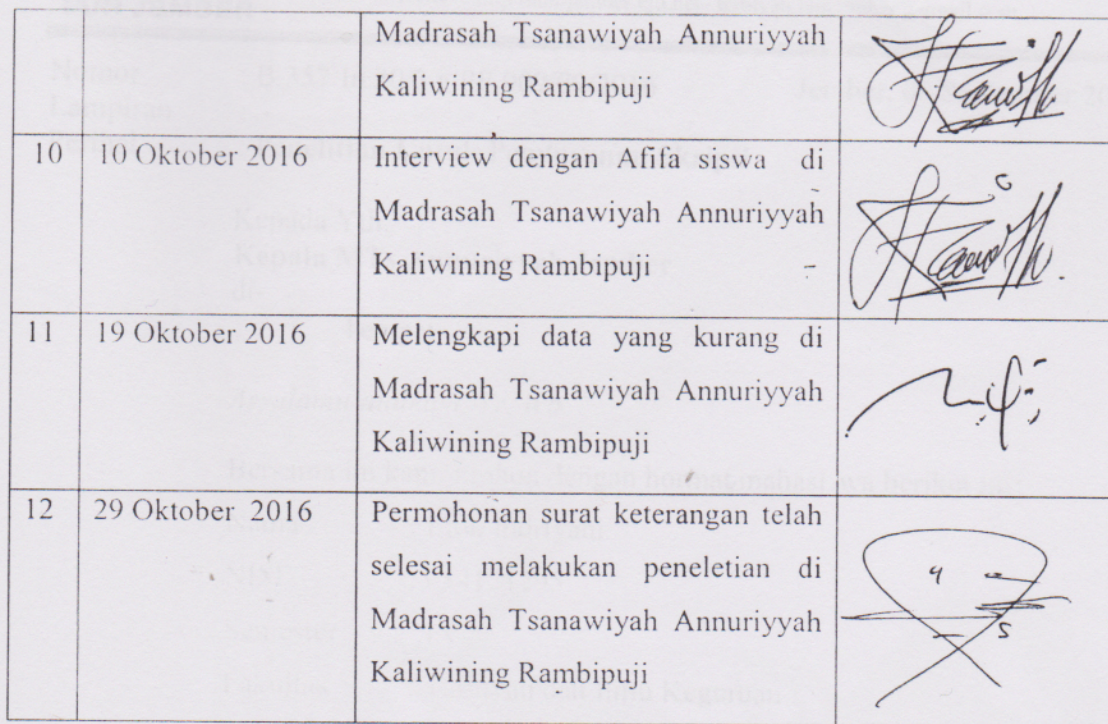 Madrasah Tsanawiyah Annuriyyah
Kaliwining Rambipuji
10 10 Oktober 2016 Interview dengan Afifa siswa di
Madrasah Tsanawiyah Annuriyyah
Kaliwining Rambipuji
11 19 Oktober 2016 Melengkapi data yang kurang di
Madrasah Tsanawiyah Annuriyyah
Kaliwining Rambipuji
12 29 Oktober 2016 Permohonan surat keterangan telah
selesai melakukan peneletian di
Madrasah Tsanawiyah Annuriyyah
Kaliwining Rambipuji